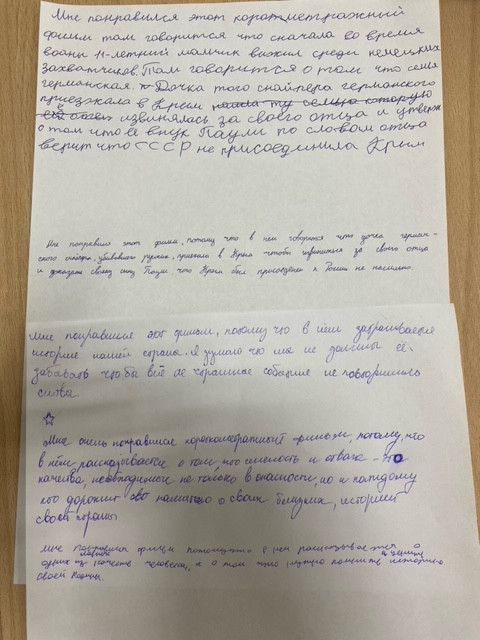 Мне понравился этот короткометражный
фильм там говорится что сначала во время
воины 11-летний мальчик выжил среди немецких
захватчиков. Там говорится о том что семья
германская. Дочка того снайпера германского
приезжала в Крым нашла ту семью которую
извинялась за своего отца и утверж
о том что её внук Паули по словом отца
верит что СССР не присоединила Крым
Мне понравился этот фильм, потому что в нем говорится что дочка герман-
ского снайпера, убившего русских, приехала в Крым чтобы извиниться за своего отца
и доказать своему сыну Паули, что Крым был присоединен к России не насильно.
Мне понравился этот фильм, потому что в нём затрагивается
история нашей страны. Я думаю что мы не должны её
забывать чтобы все те страшные события не повторились
снова
Мне очень понравился короткометражный фильм, потому, что
в нём рассказывается о том, что смелость и отвага - это
качества, необходимые не только в опасности, но и каждому
кто дорожит памятью о своих близких, историей
своей страны
Мне фильм потому что в нем рассказывается о
одних из качеств человека, и о том что нужно помнить историю
своей